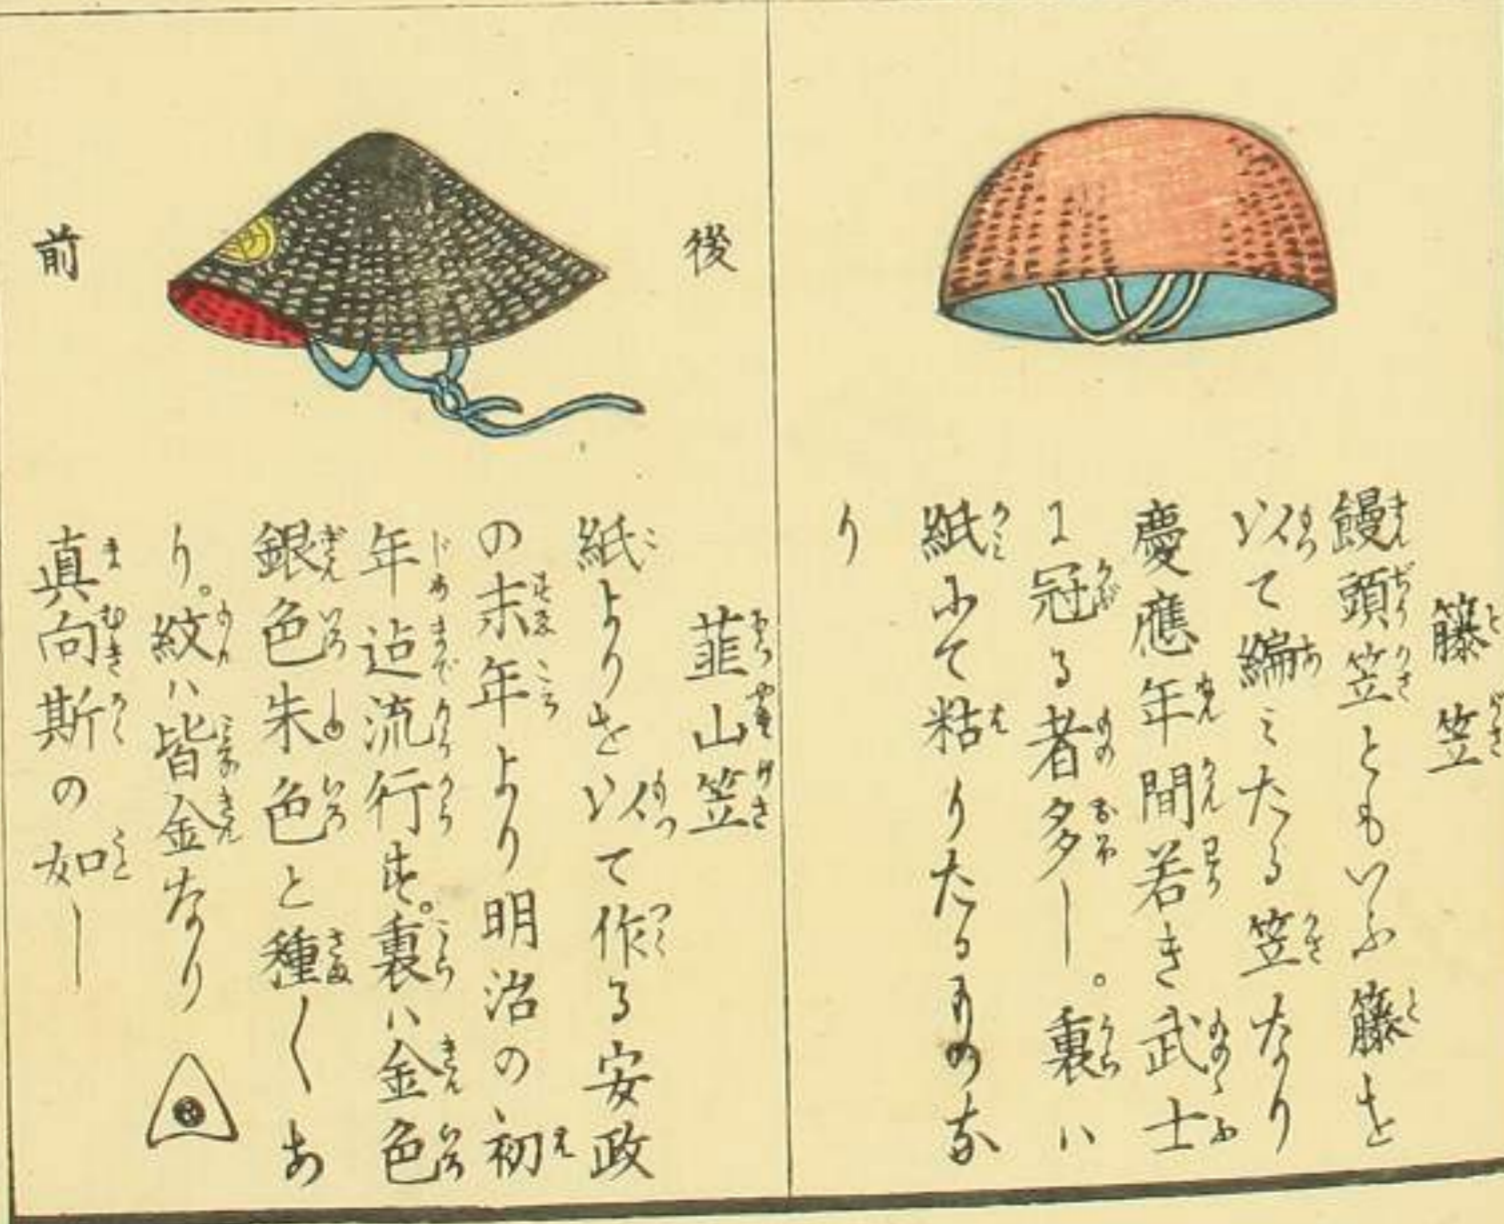 籐笠
饅頭笠ともいふ籐を
以て編ミたる笠なり
慶應年間若き武士
に冠る者多し。裏ハ
紙にて粘りたるものな
り
後
前
韮山笠
紙よりを以て作る安政
の末年より明治の初
年迠流行す。裏ハ金色
銀色朱色と種〱あ
り。紋ハ皆金なり
真向斯の如し